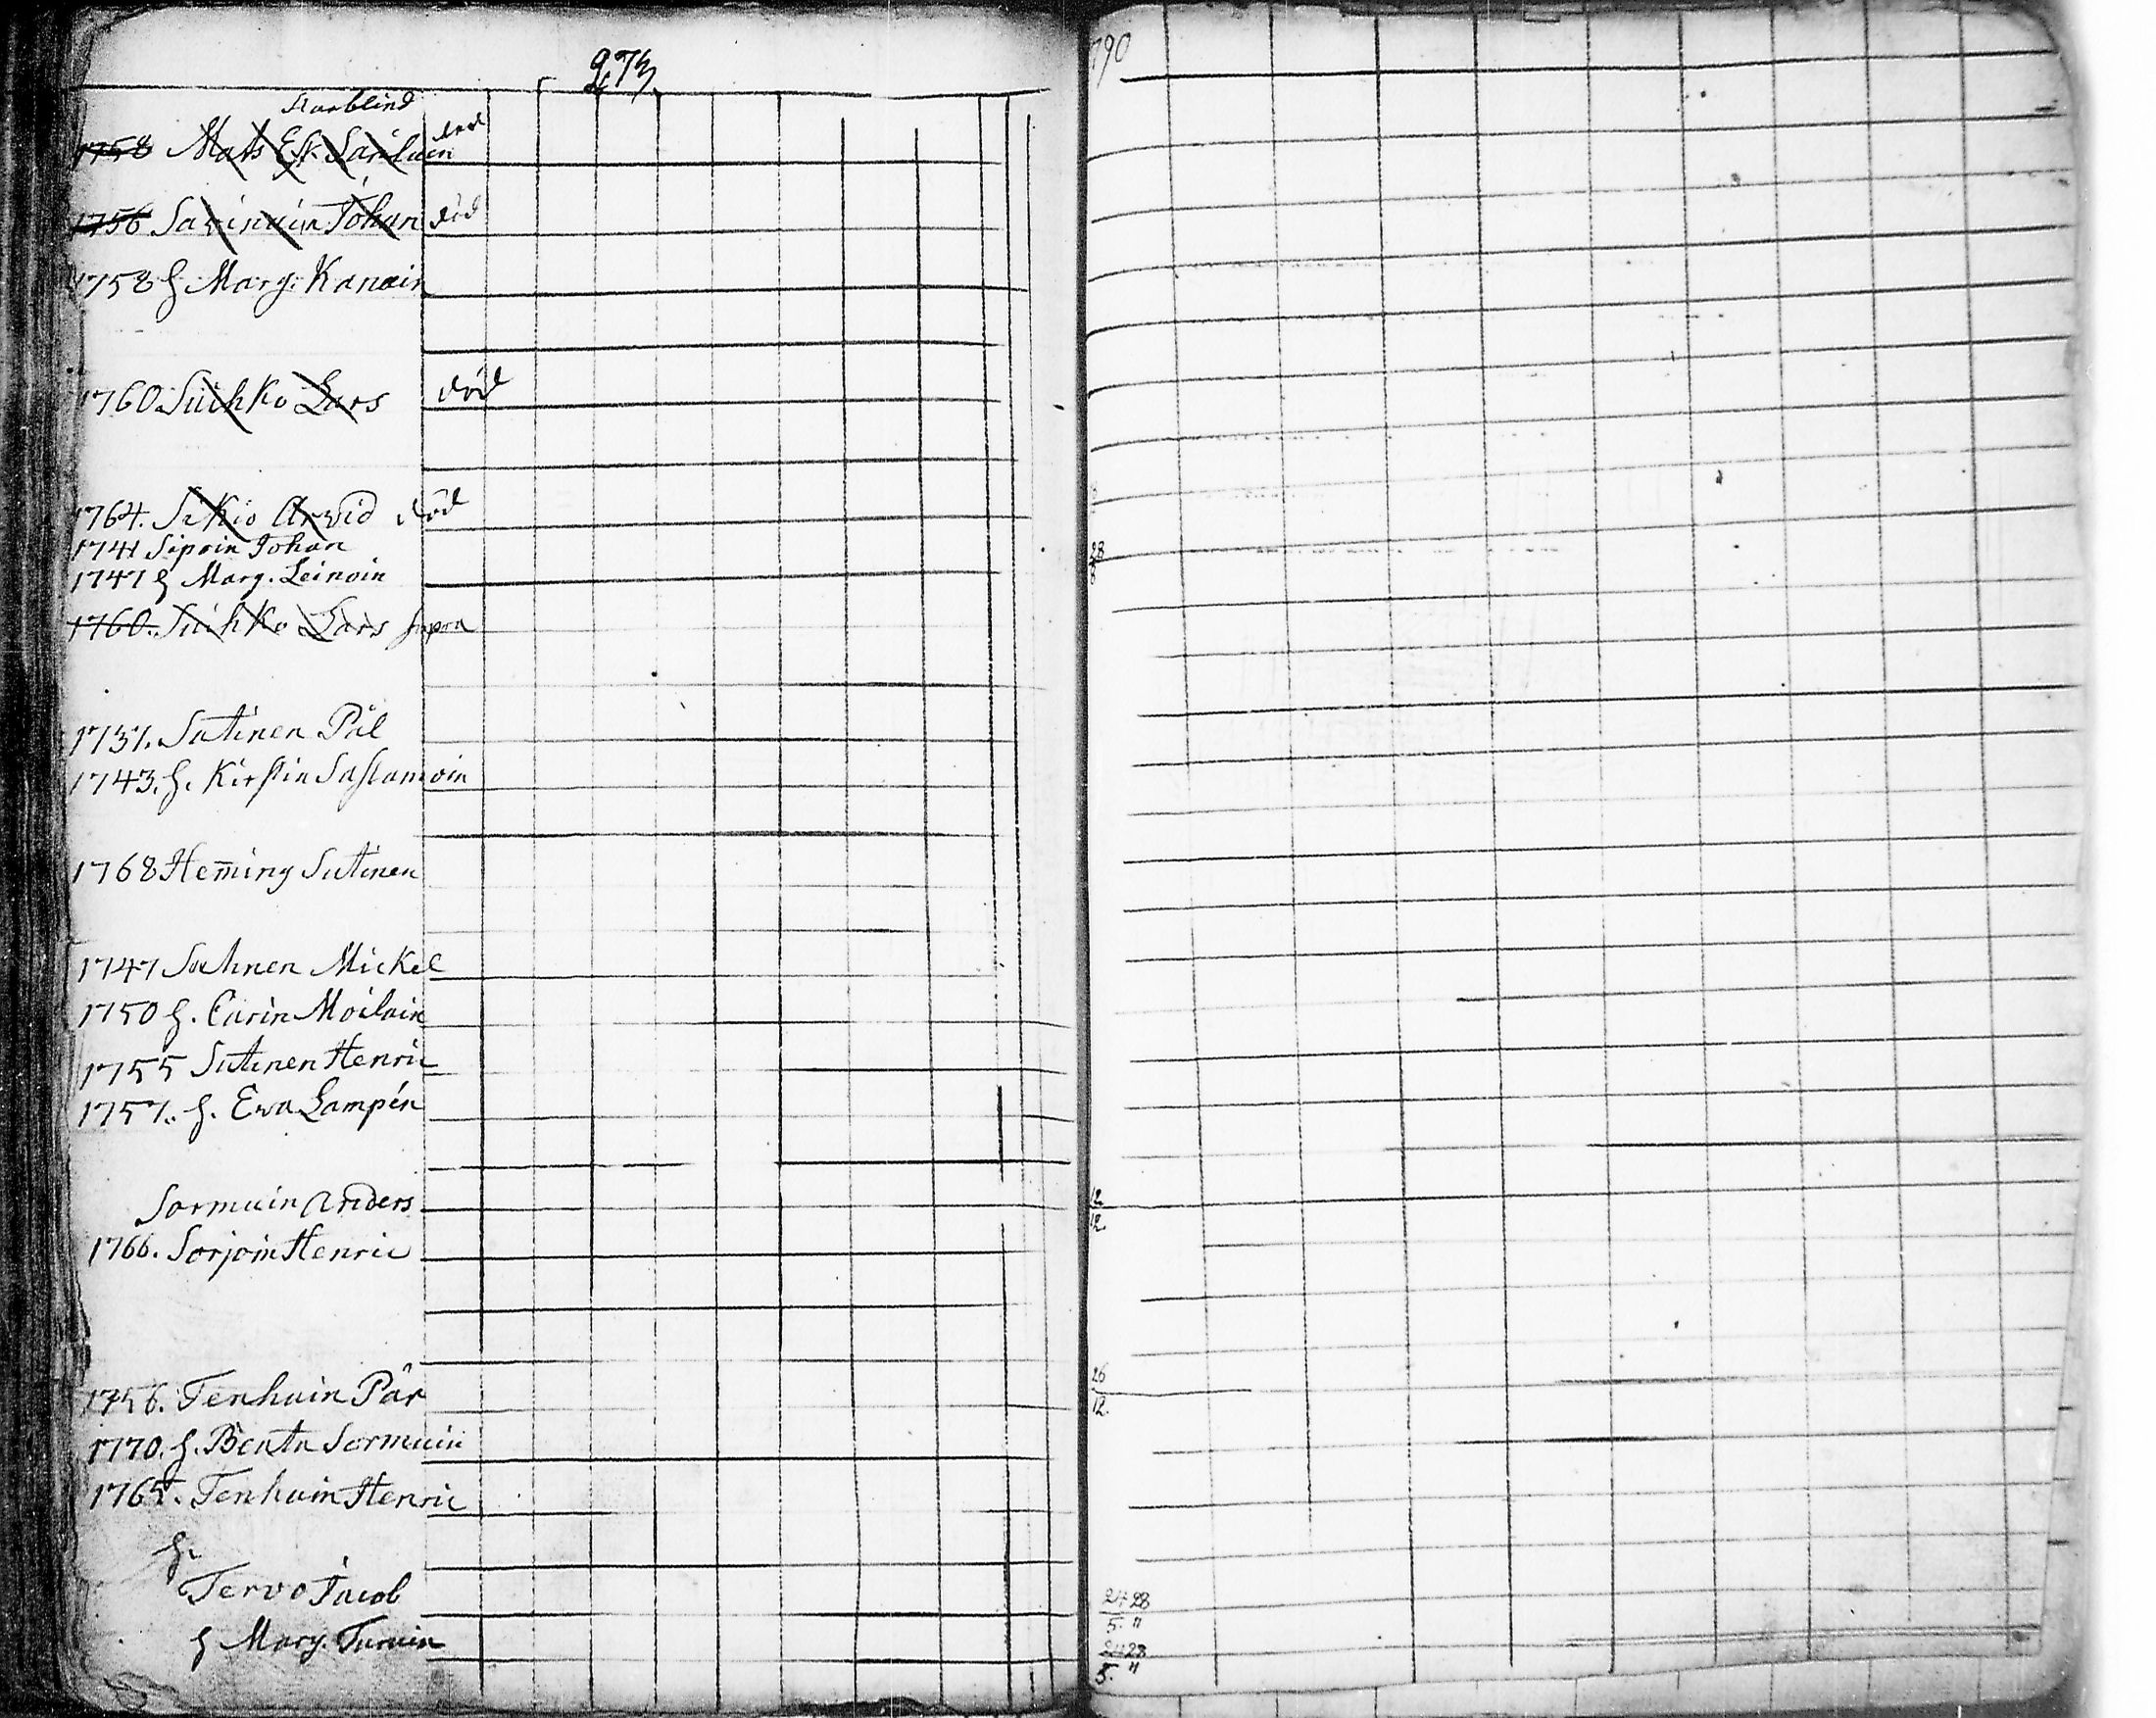 273
790
Starblind
1758 Mats Esk. Sarlain död
1756 Savinain Johan död
1758 h Marg. Kanain
1760 Suihko Lars död
1764. Sikio Arvid död
1741 Sipoin Johan
1747 h Marg. Leinoin
1760. Suihko Lars supra
1737. Sutinen Pål
1743. h. Kirstin Saslamoin
1768 Hem̄ing Sutinen
1747 Sutinen Mickel
1750 h. Carin Moilain
1755 Sutinen Henric
1757. h. Ewa Lampén
Sormuin Anders
1766. Sorjoin Henric
1756. Tenhuin Pår
1770. h. Benta Sormuin
1765. Tenhuin Henric
h.
Tervo Jacob
h Marg. Turuin
28
12
12
26
12
24 28
5. "
24 28
5. "